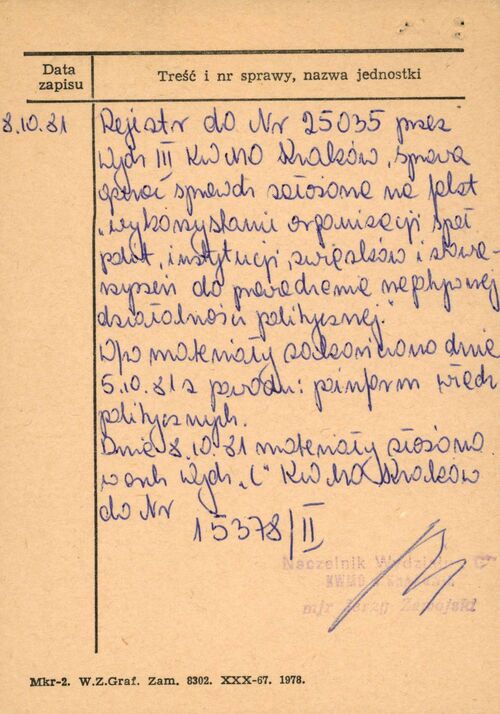 Data zapisu
Treść i nr sprawy, nazwa jednostki
8.10.81
Rejestr do Nr 25035 przez
Wydz III KWMO Kraków, sprawa
operac sprawdz założona na fakt
„wykorzystanie organizacji społ
polit, instytucji, związków i stowa-
rzyszeń do prowadzenia negatywnej
działalności politycznej."
W/w materiały zakończono dnia
5.10.81 z powodu: poinform władz
politycznych.
Dnia 8.10.81 materiały złożono
w arch Wydz „C" KWMO Kraków
do Nr
15378/II
Naczelnik Wydziału "C"
KWMO
mjr Jerzy
Mkr-2. W.Z.Graf. Zam. 8302. XXX-67. 1978.